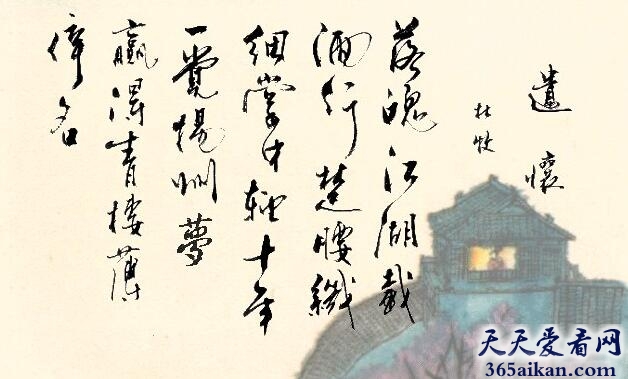 遣懷
杜牧
落魄江湖載
酒行楚腰纖
細掌中輕十年
一覺揚州夢
贏得青樓薄
倖名
天天爱看网
365aikan.com